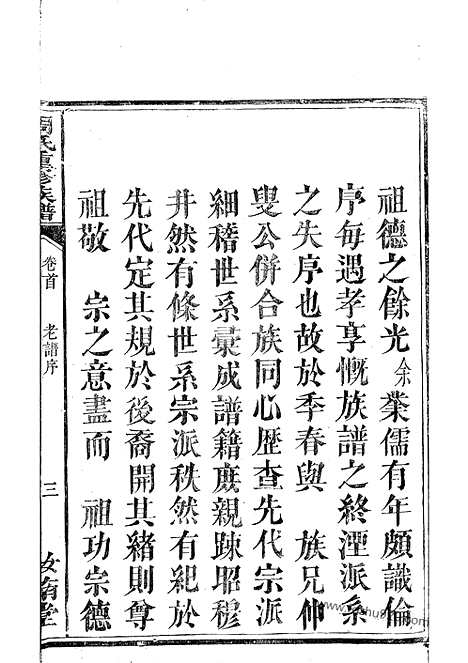 祖德之餘光余業儒有年頗識倫
序每遇孝享慨族譜之終湮派系
之失序也故於季春與 族兄仰
叟公併合族同心歷查先代宗派
細稽世系彙成譜籍庶親踈昭穆
井然有條世系宗派秩然有紀於
先代定其規於後裔開其緒則尊
祖敬 宗之意盡而 祖功宗德
周氏重修族譜
卷首 老譜序 三 汝南堂